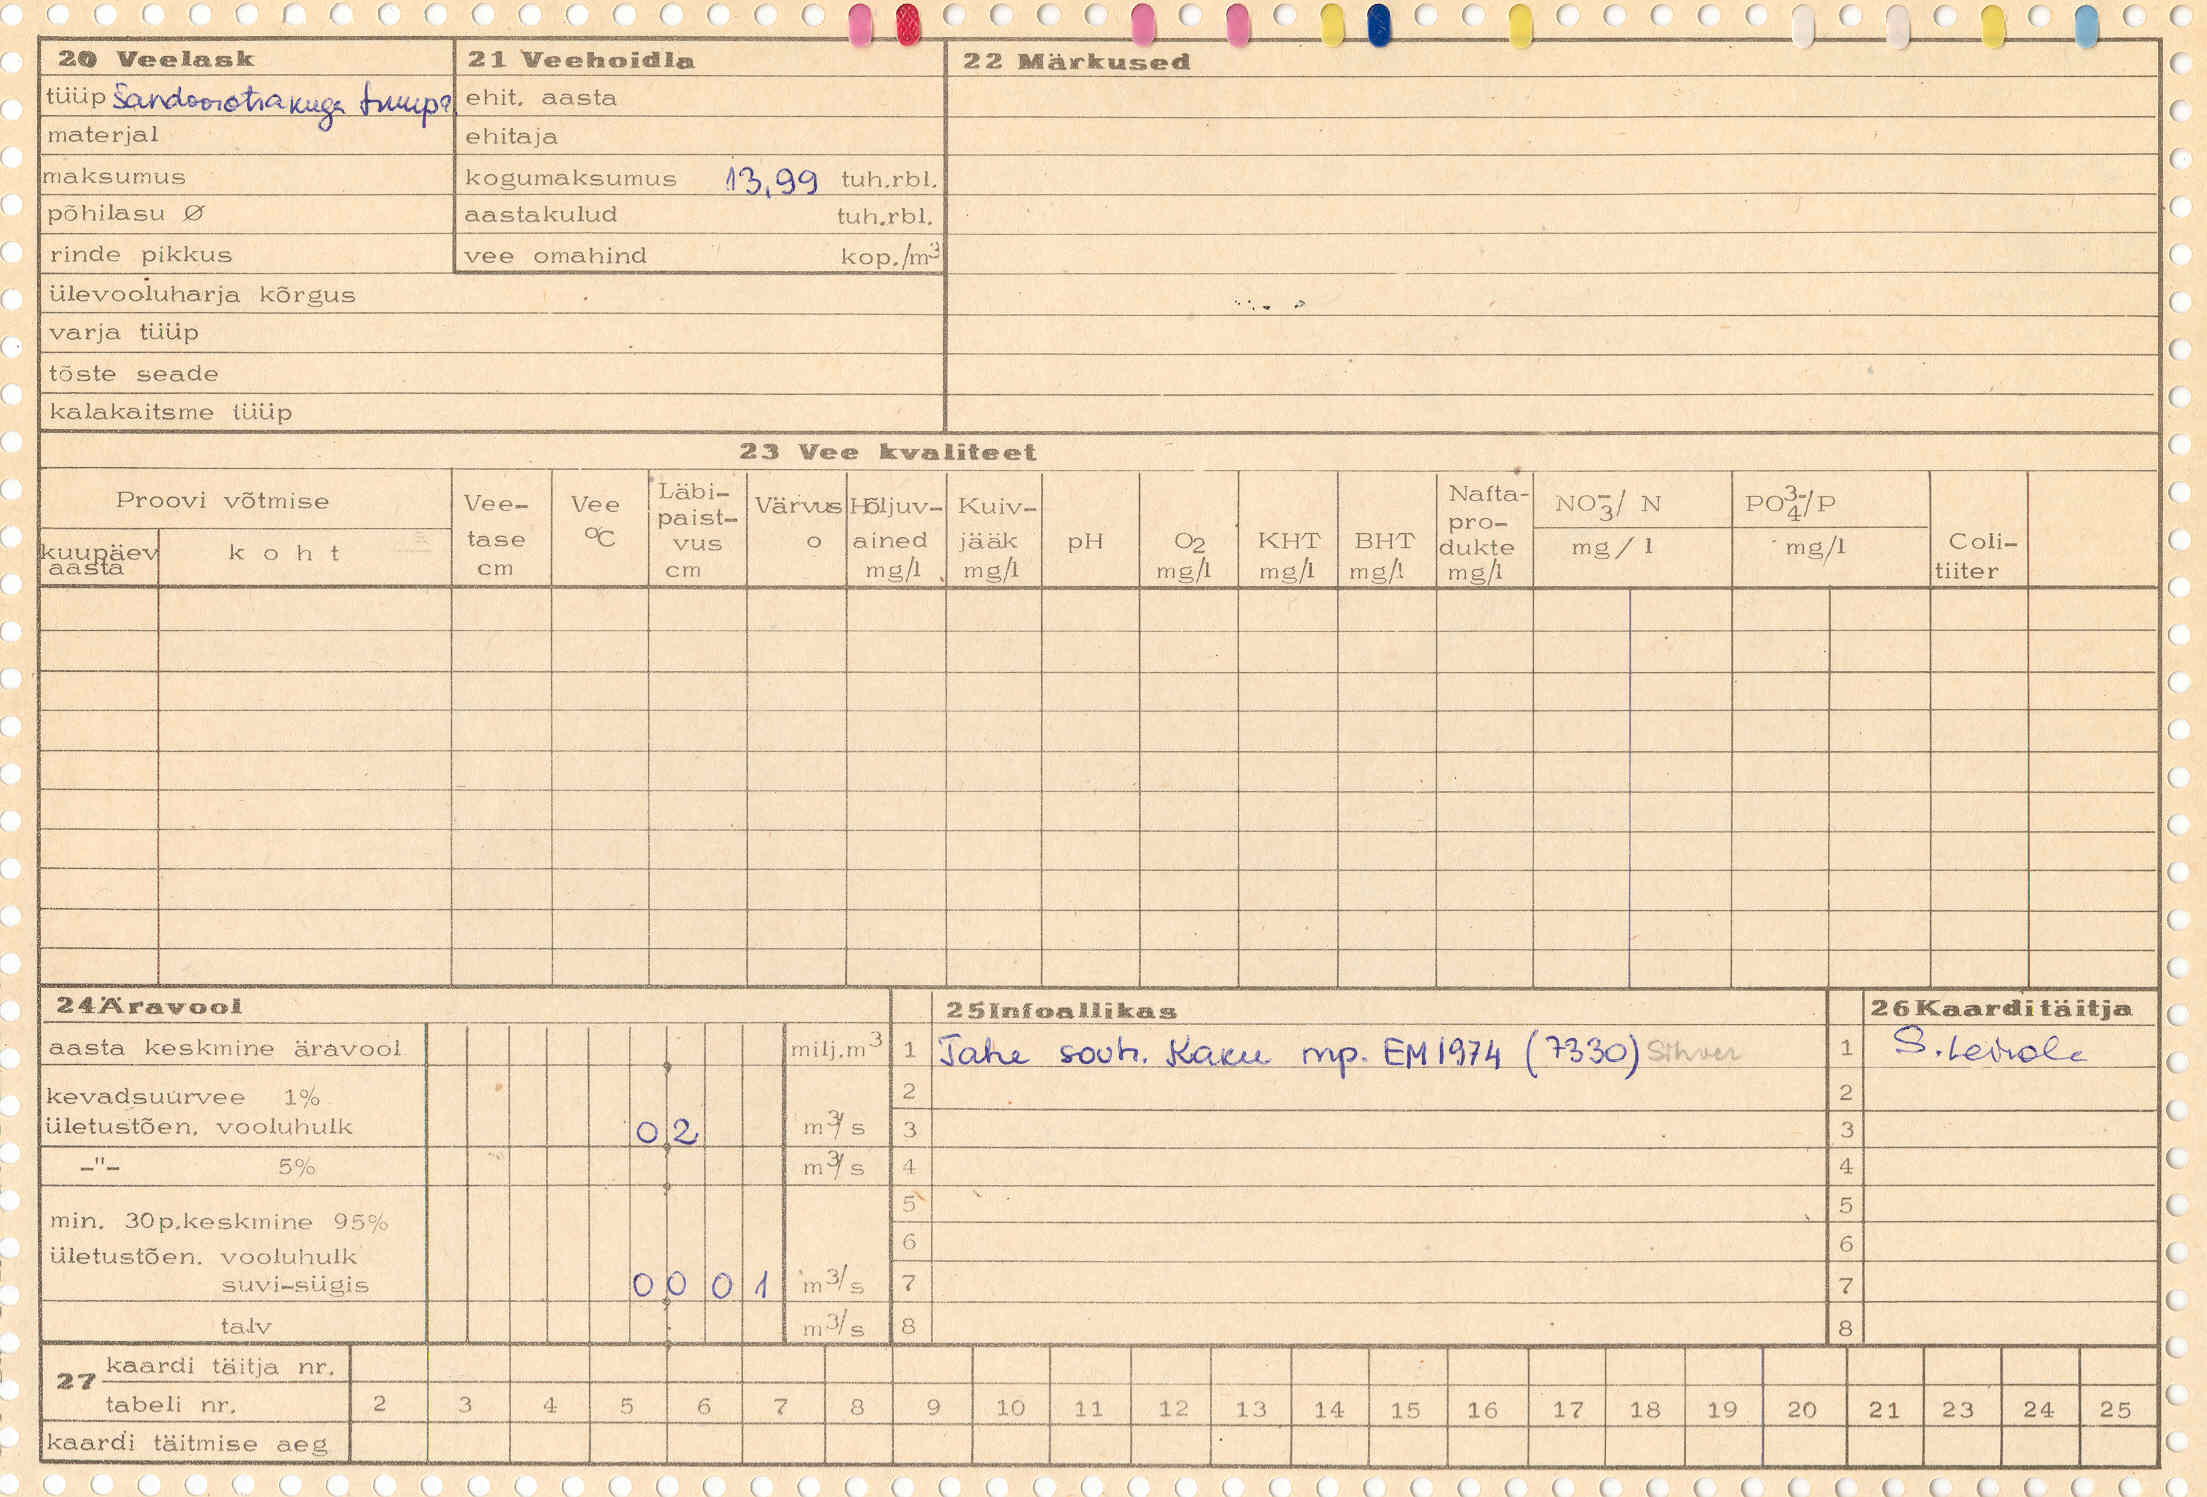 20 Veelask
tüüp
materjal
maksumus
põhilasu Ø
rinde pikkus
ülevooluharja kõrgus
varja tüüp
tõste seade
kalakaitsme tüüp
21 Veehoidla
ehit. aasta
ehitaja
kogumaksumus 13,99 tuh.rbl.
aastakulud tuh.rbl.
vee omahind kop./m3
22 Märkused
23 Vee kvaliteet
Proovi võtmise
kuupäev aasta
koht
Vee-tase cm
Vee °C
Läbi-paist-vus cm
Värvus o
Hõljuv-ained mg/l
Kuiv-jääk mg/l
pH
O2 mg/l
KHT mg/l
BHT mg/l
Nafta-pro-dukte mg/l
NO3-/ N mg/l
PO43-/P mg/l
Coli-tiiter
24 Äravool
aasta keskmine äravool milj.m3
kevadsuurvee 1%
ületustõen. vooluhulk 02 m3/s
-"- 5% m3/s
min. 30p.keskmine 95%
ületustõen. vooluhulk
suvi-sügis 0001 m3/s
talv m3/s
25 Infoallikas
1 Tahe sovh. Kaku mp. EM 1974 (7330)
2
3
4
5
6
7
8
26 Kaarditäitja
1
2
3
4
5
6
7
8
27 kaardi täitja nr.
tabeli nr. 2 3 4 5 6 7 8 9 10 11 12 13 14 15 16 17 18 19 20 21 23 24 25
kaardi täitmise aeg